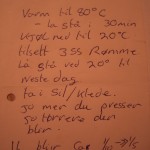 Varm til 80°C
- la stå i 30min
kjøl ned til 20°C.
tilsett 3 ss Rømme
La stå ved 20° til
neste dag
ta i sil/klede.
jo mer du presser
jo tørrere den
blir.
blir